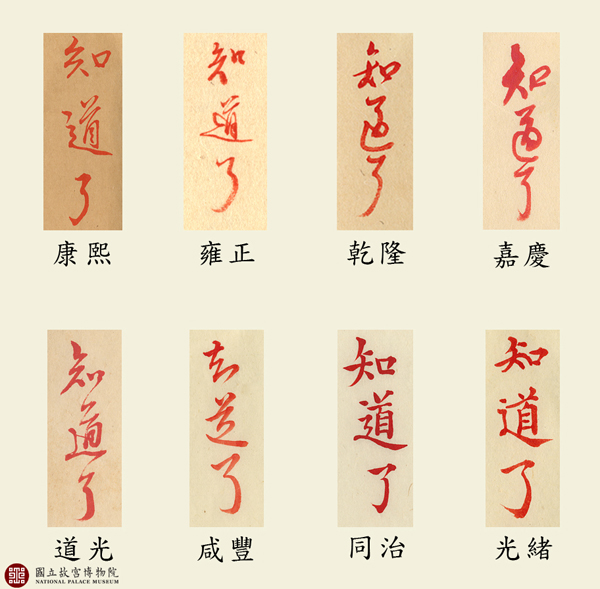 知道了
知道了
知道了
知道了
康熙
雍正
乾隆
嘉慶
知道了
知道了
知道了
知道了
道光
咸豐
同治
光緒
國立故宮博物院
NATIONAL PALACE MUSEUM